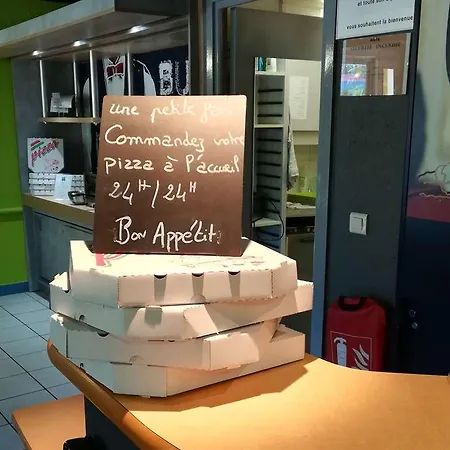 et toute son
vous souhaitent la bienvenue
BU
une petite
Commandez votre
pizza à l'accueil
24H/24H
Bon Appétit
pizza